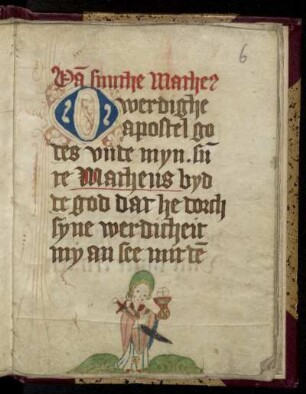 6
Vā sunthe Mathe9
O werdighe
apostel go
des vnde myn. sū
re Matheus byd
de god dat he dorch
syne werdicheit
my an see mit dē